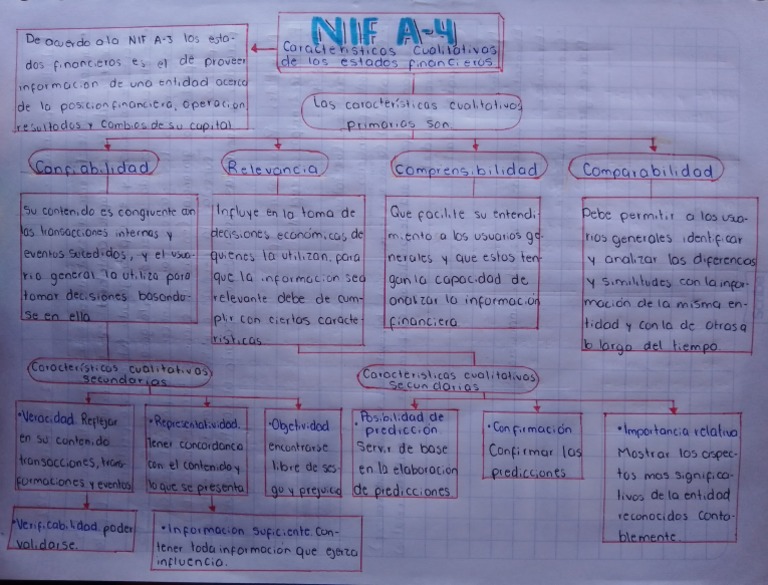 NIF A-4
Características Cualitativas
de los estados financieros.
De acuerdo a la NIF A-3 los esta-
dos financieros es el de proveer
información de una entidad acerca
de la posición financiera, operación,
resultados y cambios de su capital
Las características cualitativas
primarias son
Confiabilidad
Relevancia
Comprensibilidad
Comparabilidad
Su contenido es congruente con
las transacciones internas y
eventos sucedidos, y el usua-
rio general la utiliza para
tomar decisiones basando-
se en ella
Influye en la toma de
decisiones económicas de
quienes la utilizan, para
que la información sea
relevante debe de cum-
plir con ciertas caracte-
risticas
Que facilite su entendi-
miento a los usuarios ge-
nerales y que estos ten-
gan la capacidad de
analizar la información
financiera
Debe permitir a los usua-
rios generales identificar
y analizar las diferencias
y similitudes con la infor-
mación de la misma en-
tidad y con la de otras a
lo largo del tiempo
Características cualitativas
secundarias
Características cualitativas
Secundarias
•Veracidad. Reflejar
en su contenido
transacciones, trans-
formaciones, y eventos
•Representatividad.
Tener concordancia
con el contenido y
lo que se presenta
•Objetividad
encontrarse
libre de ses-
go y prejuicio
•Posibilidad de
predicción.
Servir de base
en la elaboración
de predicciones
•Confirmación
Confirmar las
predicciones
•Importancia relativa
Mostrar los aspec-
tos mas significa-
tivos de la entidad
reconocidos conta-
blemente
•Verificabilidad poder
validarse.
•Información suficiente. Con-
tener toda información que ejerza
influencia.